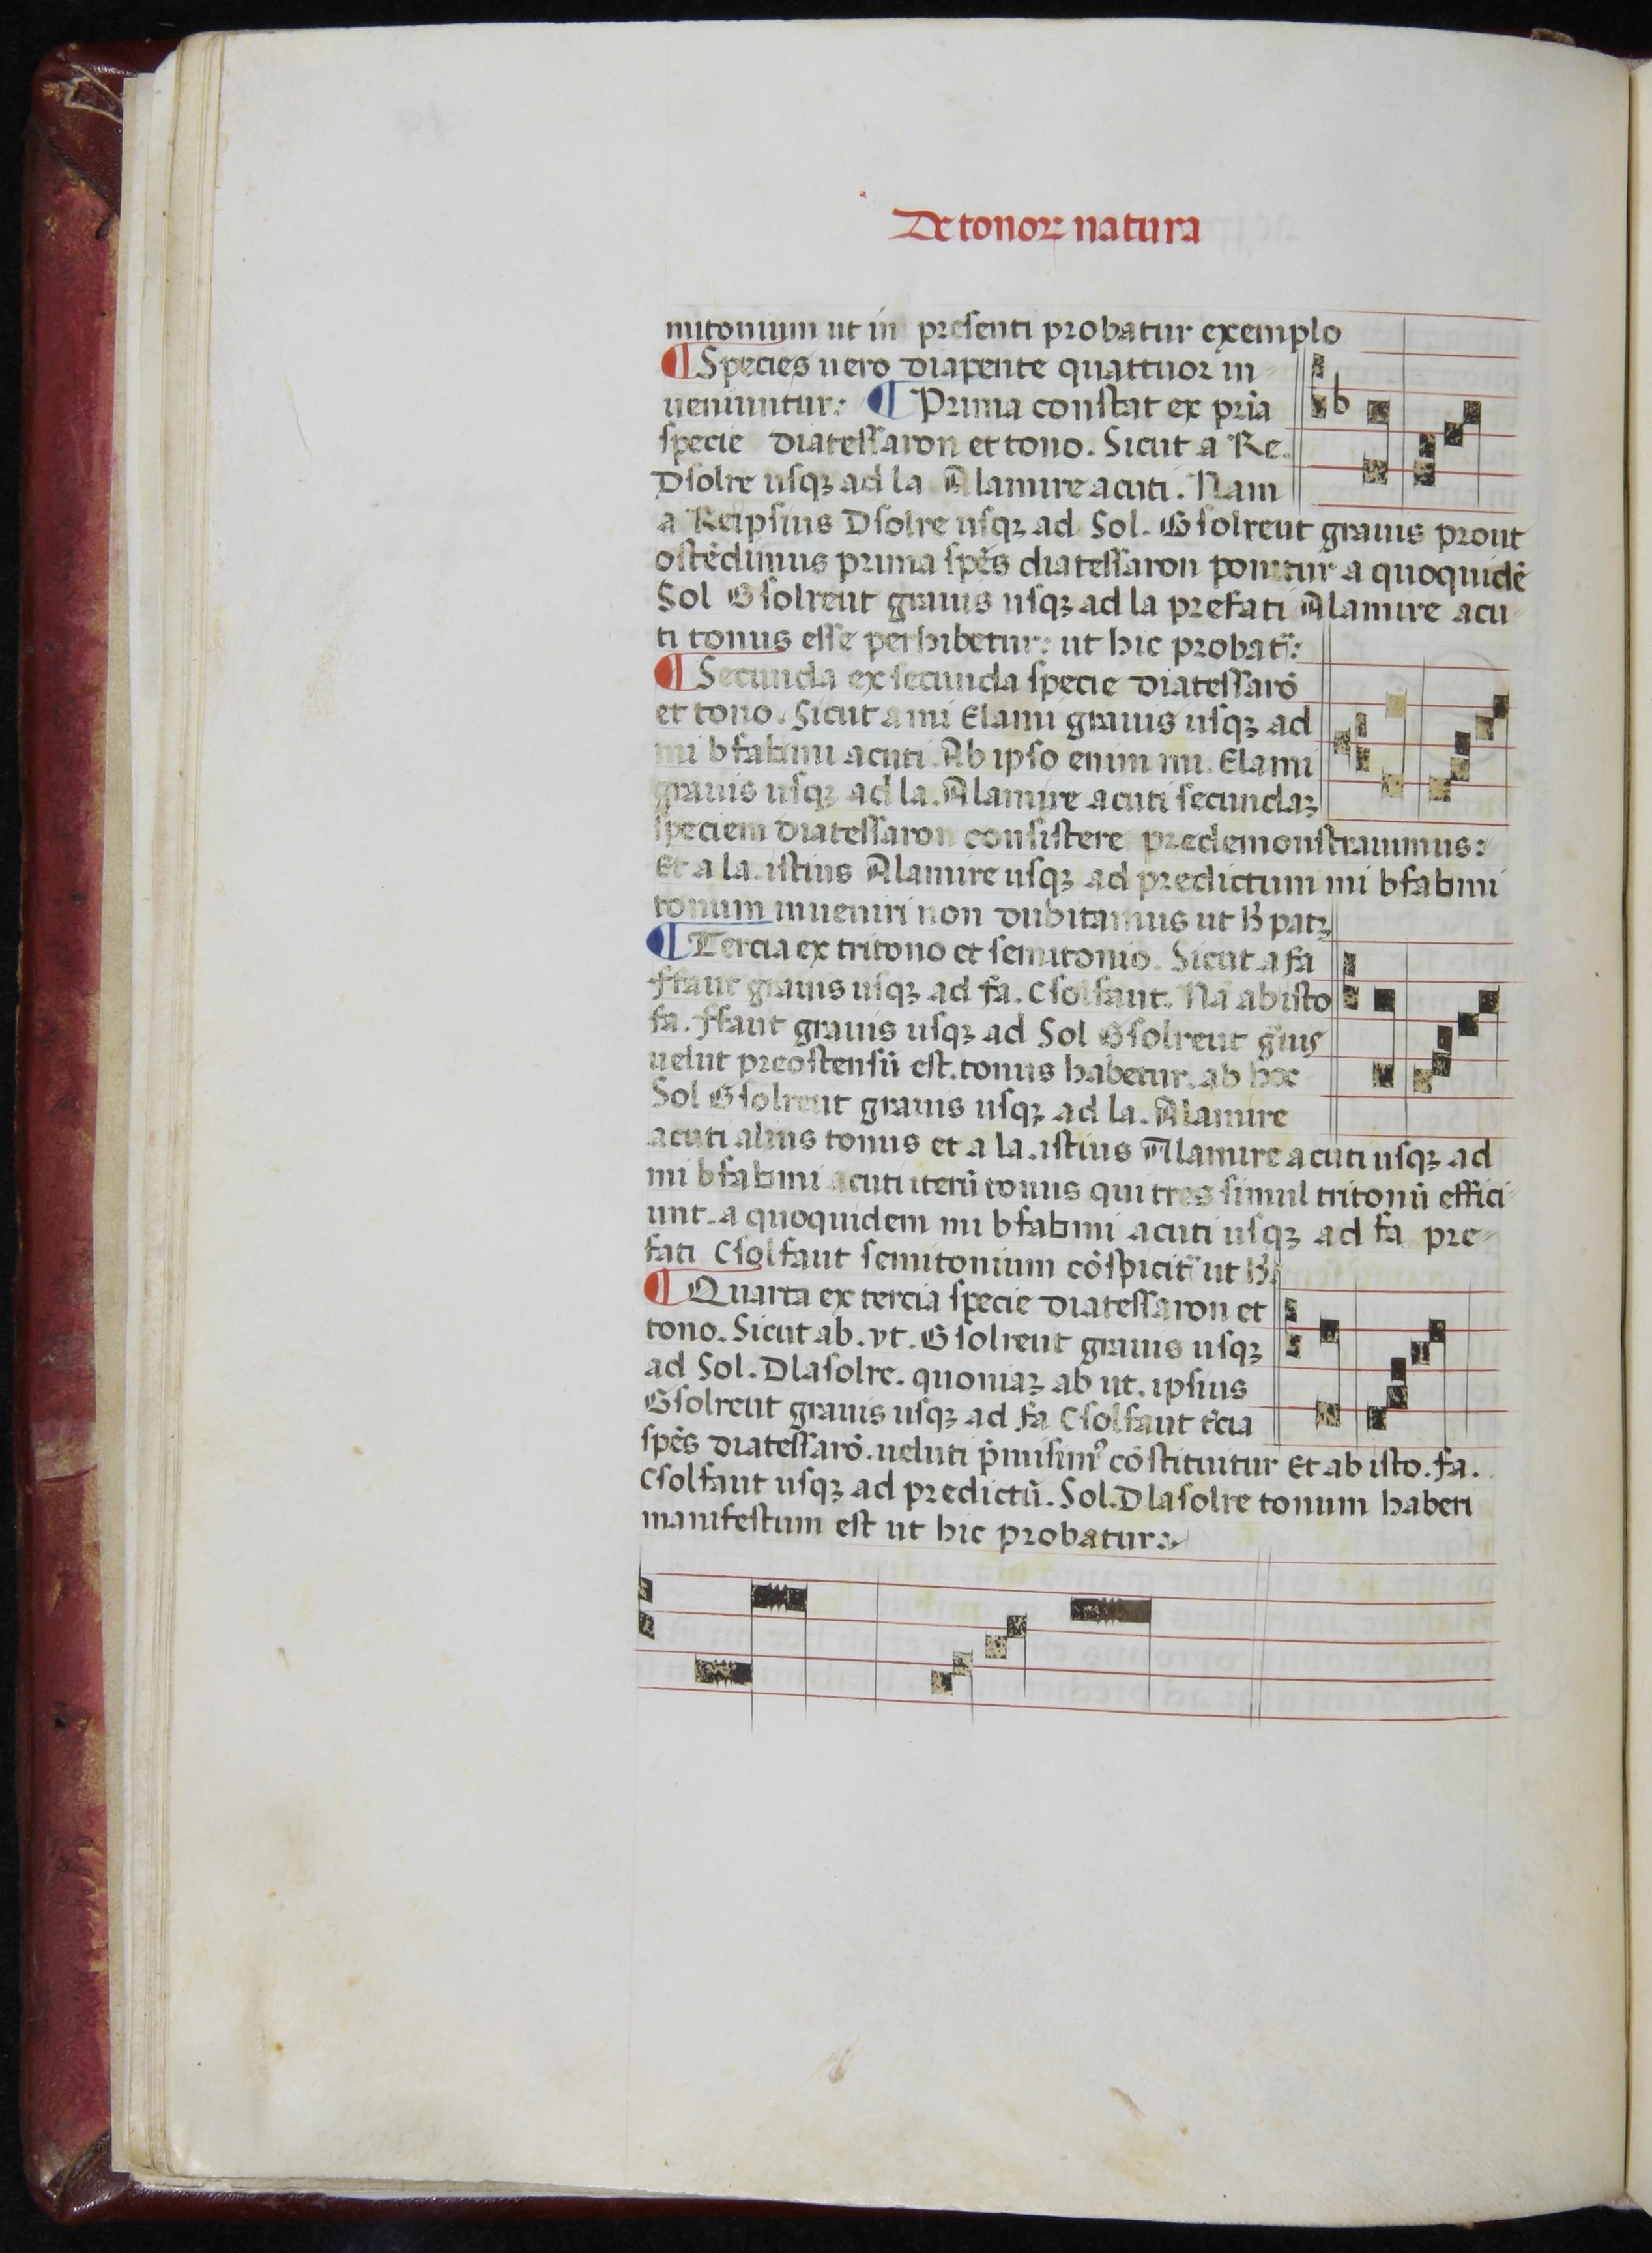 De tonoꝝ natura
mitonium ut in presenti probatur exemplo
¶ Species uero diapente quattuor in
ueniuntur: ¶ Prima constat ex pria̅
specie diatessaron et tono. Sicut a Re.
Dsolre usqꝫ ad la Alamire acuti. Nam
a Re ipsius Dsolre usqꝫ ad Sol. Gsolreut grauis prout
oste̅dimus prima spe̅s diatessaron ponitur a quoquide̅
Sol Gsolreut grauis usqꝫ ad la prefati Alamire acu
ti tonus esse perhibetur: ut hic probat̅:
¶ Secunda ex secunda specie diatessaro̅
et tono. Sicut a mi Elami grauis usqꝫ ad
mi bfabmi acuti. Ab ipso enim mi. Elami
grauis usqꝫ ad la. Alamire acuti secundaꝫ
speciem diatessaron consistere predemonstrauimus:
Et a la. istius Alamire usqꝫ ad predictum mi bfabmi
tonum inueniri non dubitamus ut h̅ patꝫ
¶ Tercia ex tritono et semitonio. Sicut a fa
ffaut grauis usqꝫ ad fa. Csolfaut. Na̅ ab isto
fa. ffaut grauis usqꝫ ad Sol Gsolreut g̅uis
uelut preostensu̅ est. tonus habetur. ab hoc
Sol Gsolreut grauis usqꝫ ad la. Alamire
acuti alius tonus et a la. istius Alamire acuti usqꝫ ad
mi bfabmi acuti iteru̅ tonus qui tres simul tritonu̅ effici
unt. a quoquidem mi bfabmi acuti usqꝫ ad fa pre
fati Csolfaut semitonium co̅spicit̅ ut h̅.
¶ Quarta ex tercia specie diatessaron et
tono. Sicut ab. vt. Gsolreut grauis usqꝫ
ad Sol. Dlasolre. quoniaꝫ ab ut. ipsius
Gsolreut grauis usqꝫ ad fa Csolfaut t̅cia
spe̅s diatessaro̅. ueluti p̅misimꝰ co̅stituitur Et ab isto. fa.
Csolfaut usqꝫ ad predictu̅. Sol. Dlasolre tonum haberi
manifestum est ut hic probatur: